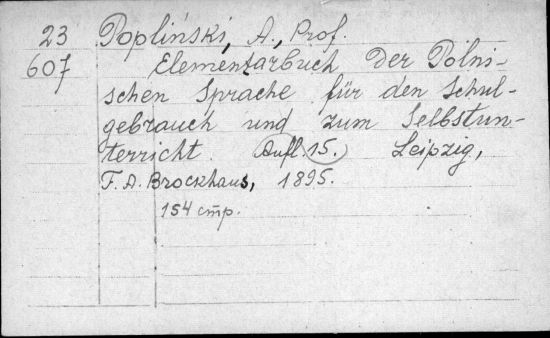 23 Popliński, A., Prof.
607 Elementarbuch der Polni-
schen Sprache für den Schul-
gebrauch und zum Selbstun-
terricht. Aufl. 15. Leipzig,
F. A. Brockhaus, 1895.
154 стр.